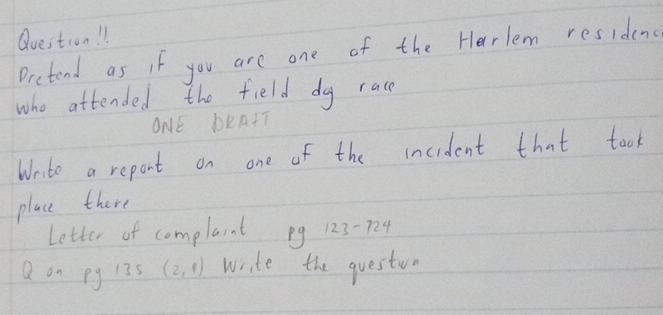 Question!!
Pretend as if you are one of the Harlem residenc
who attended the field dy race
ONE DRAFT
Write a report on one of the incident that took
place there
Letter of complaint pg 123-724
Q on pg 135 (2,1) Write the question